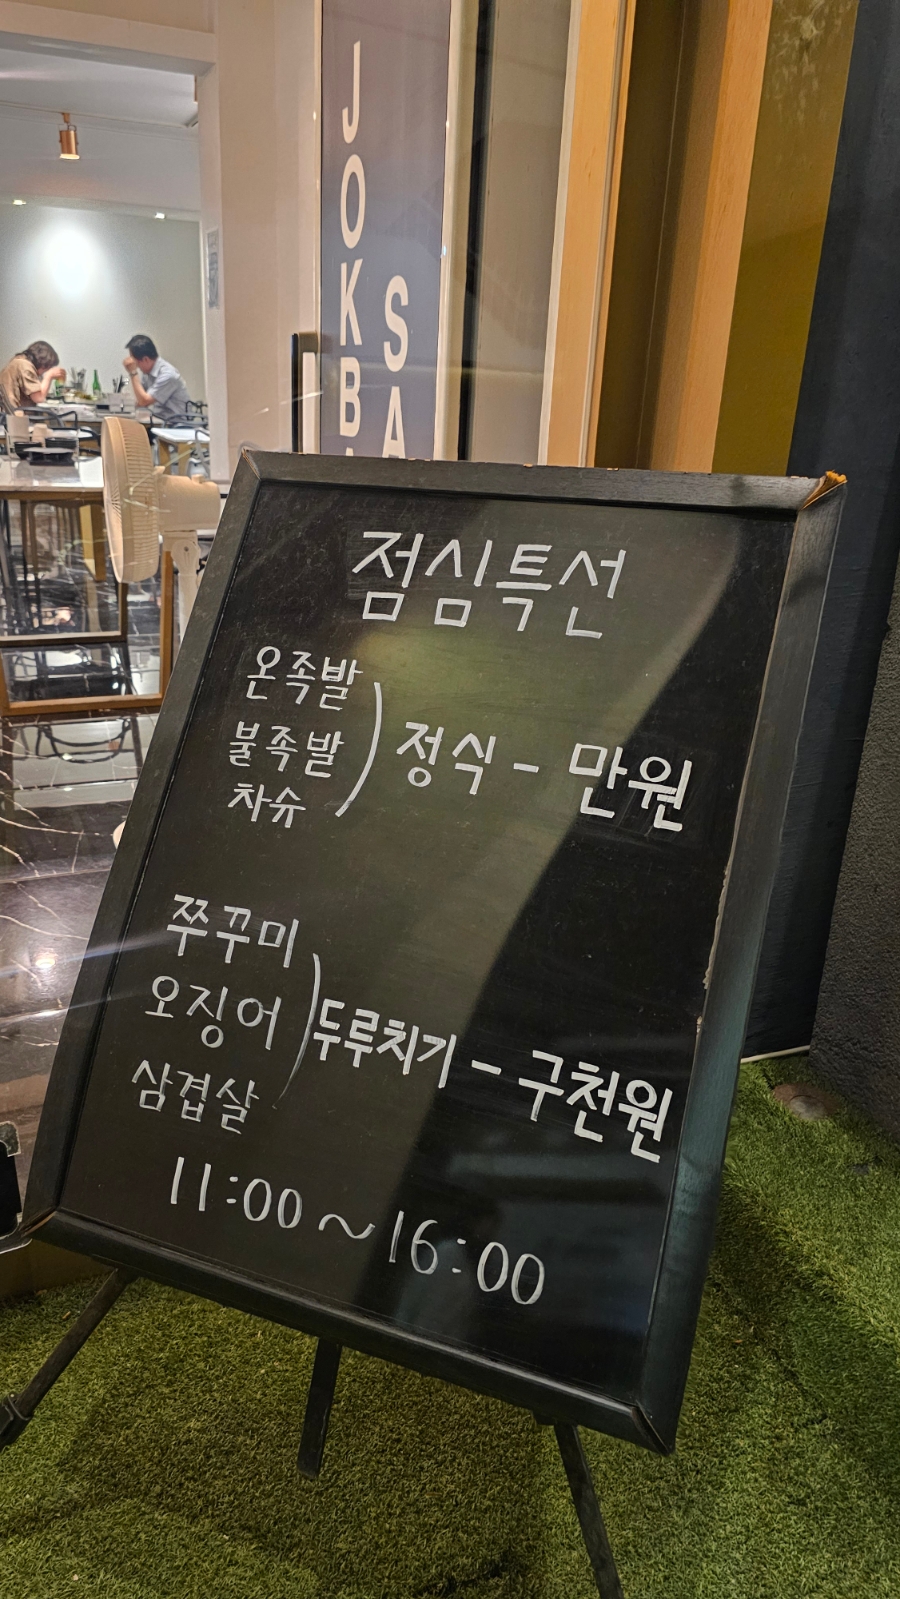 JOKBA
SA
점심특선
온족발
불족발
차슈
) 정식 - 만원
쭈꾸미
오징어
삼겹살
) 두루치기 - 구천원
11:00 ~ 16:00